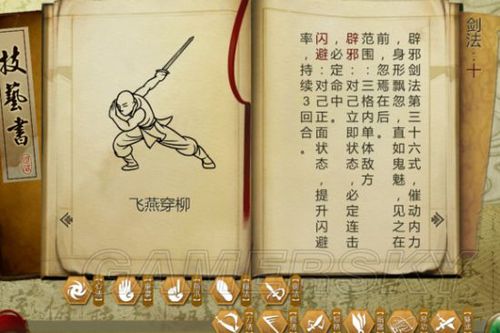 剑法：十
辟邪剑法第三十六式，催动内力
，身形飘忽，直如鬼魅，见之在
前，忽焉在后。
范围：三格内单体敌方
辟邪：对己立即状态，必定连击
，必定命中。
闪避：对己正面状态，提升闪避
率，持续3回合。
飞燕穿柳
技藝書
GAMERSKY